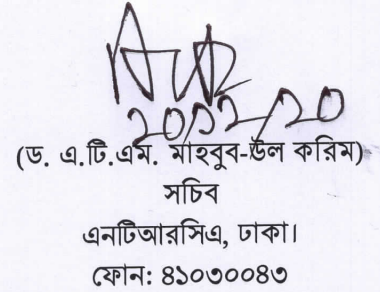 20/12/20
(ড. এ.টি.এম. মাহবুব-উল করিম)
সচিব
এনটিআরসিএ, ঢাকা।
ফোন: ৪১০৩০০৪৩